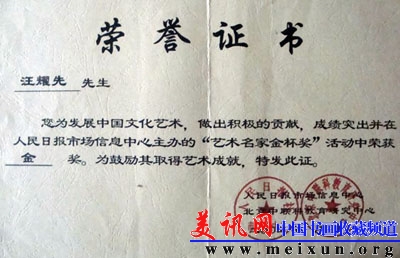 荣誉证书
汪耀先 先生
您为发展中国文化艺术，做出积极的贡献，成绩突出并在
人民日报市场信息中心主办的“艺术名家金杯奖”活动中荣获
金 奖。为鼓励其取得艺术成就，特发此证。
人民日报市场信息中心
美讯网 中国书画收藏频道
www.meixun.org